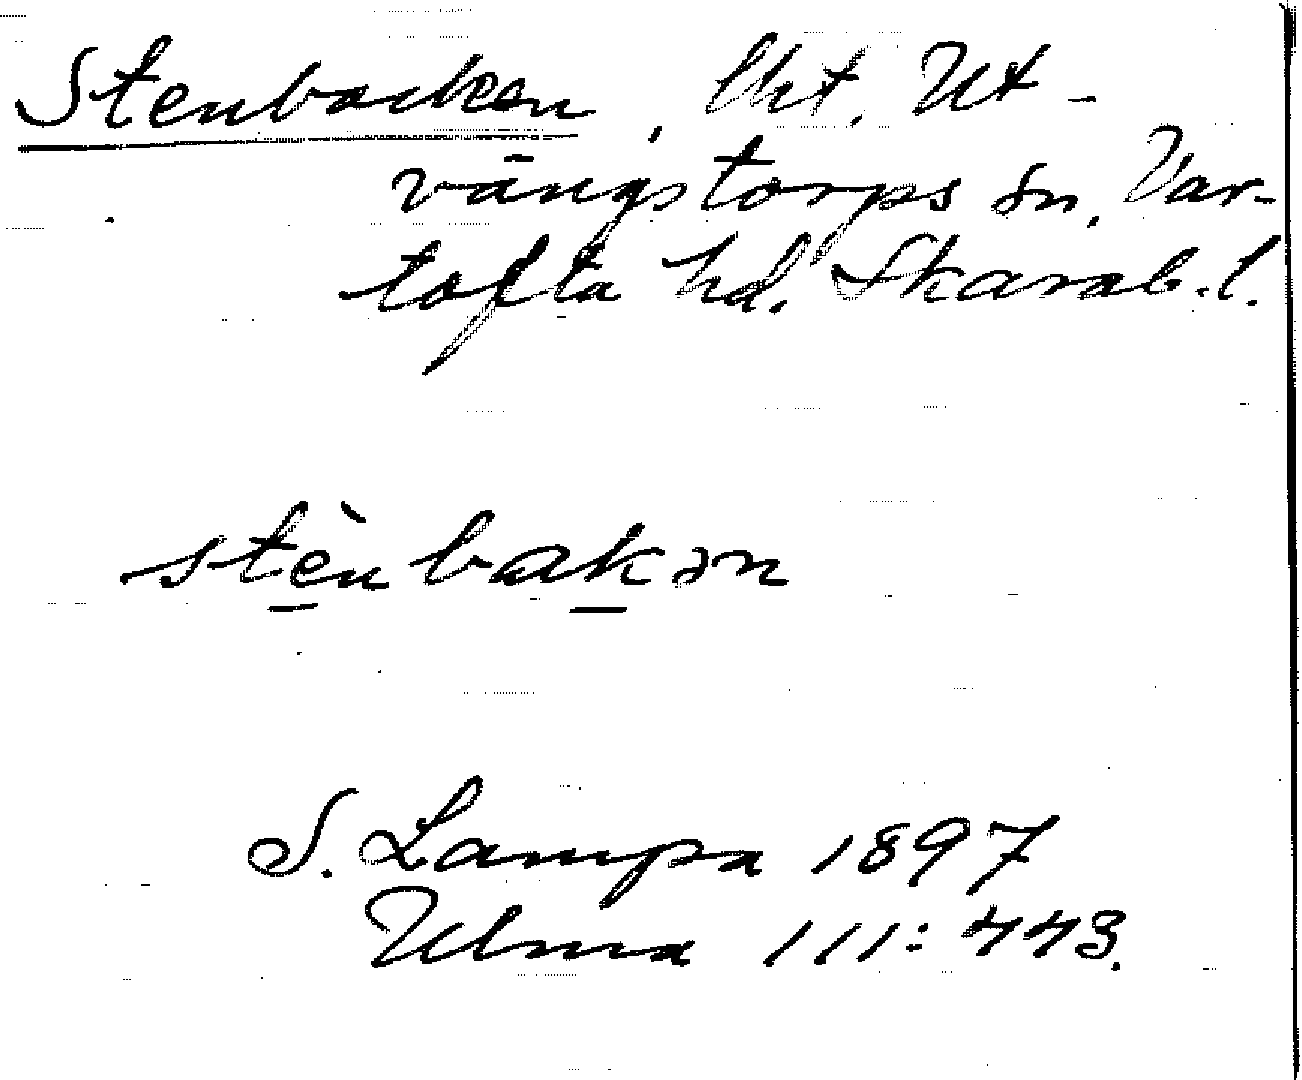 Stenbacken, lht, Ut-
vängstorps sn, Var-
tofta hd. Skarab.l.
stèn bakən
S. Lampa 1897
Ulma 111:443.